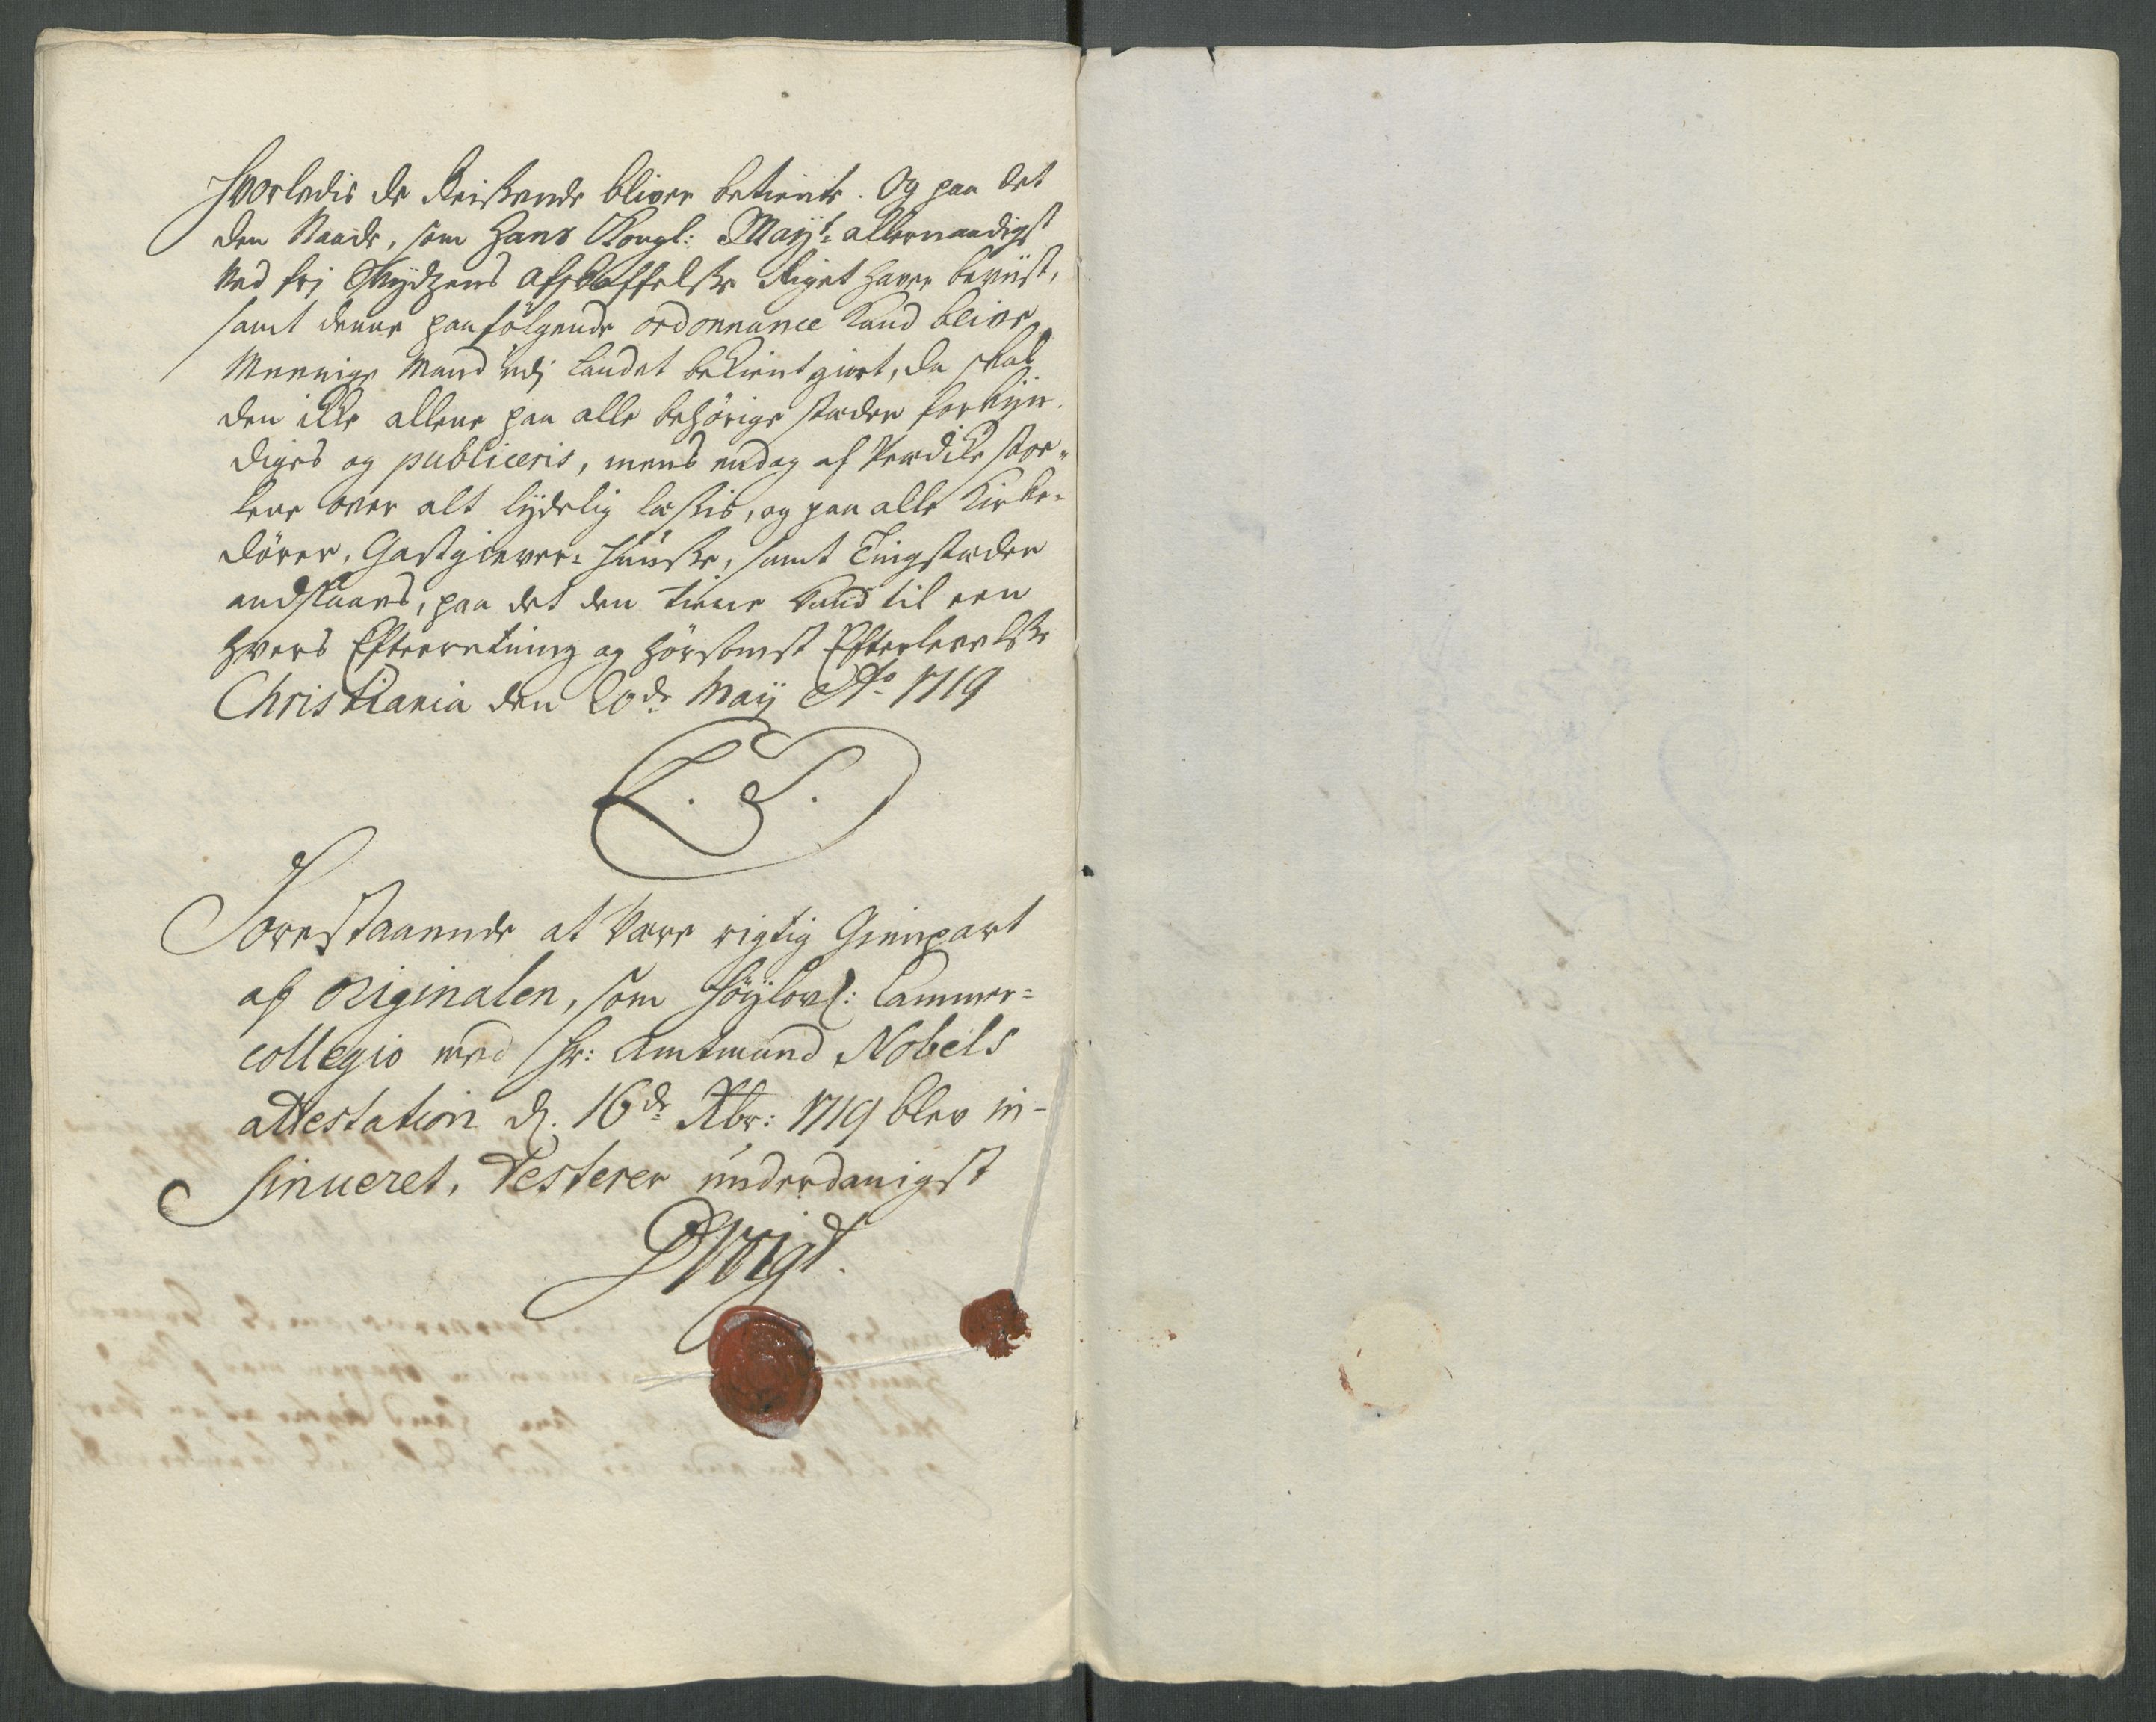 Hvorledis de Reisende bliver betient. Og paa det
den Naade, som Hans Kongl: Mayt: allernaadigst
ved fri Skydzens afskaffelse Riget haver beviist,
samt denne paafölgende ordonnance kand blive
Meenige Mand udj Landet bekientgiort, da skal
den icke allene paa alle behörige stæder forkyn-
diges og publiceris, mens endog af Prædike stoe-
lene over alt lydelig læsis, og paa alle Kirke-
dörer, Gastgiever-Huuse, samt Tingstæder
andslaaes, paa det den tiene kand til een
hvers Efterretning og hörsomst Efterlevelse
Christiania den 20de Maij Ao 1719
L. S.
Forestaaende at være rigtig Gienpart
af Originalen, som Höylovl: Cammer-
collegio med Hr: Amtmand Nobels
attestation d. 16de Xbr: 1719 blev in-
sinueret, Testerer underdanigst
PWoigt.